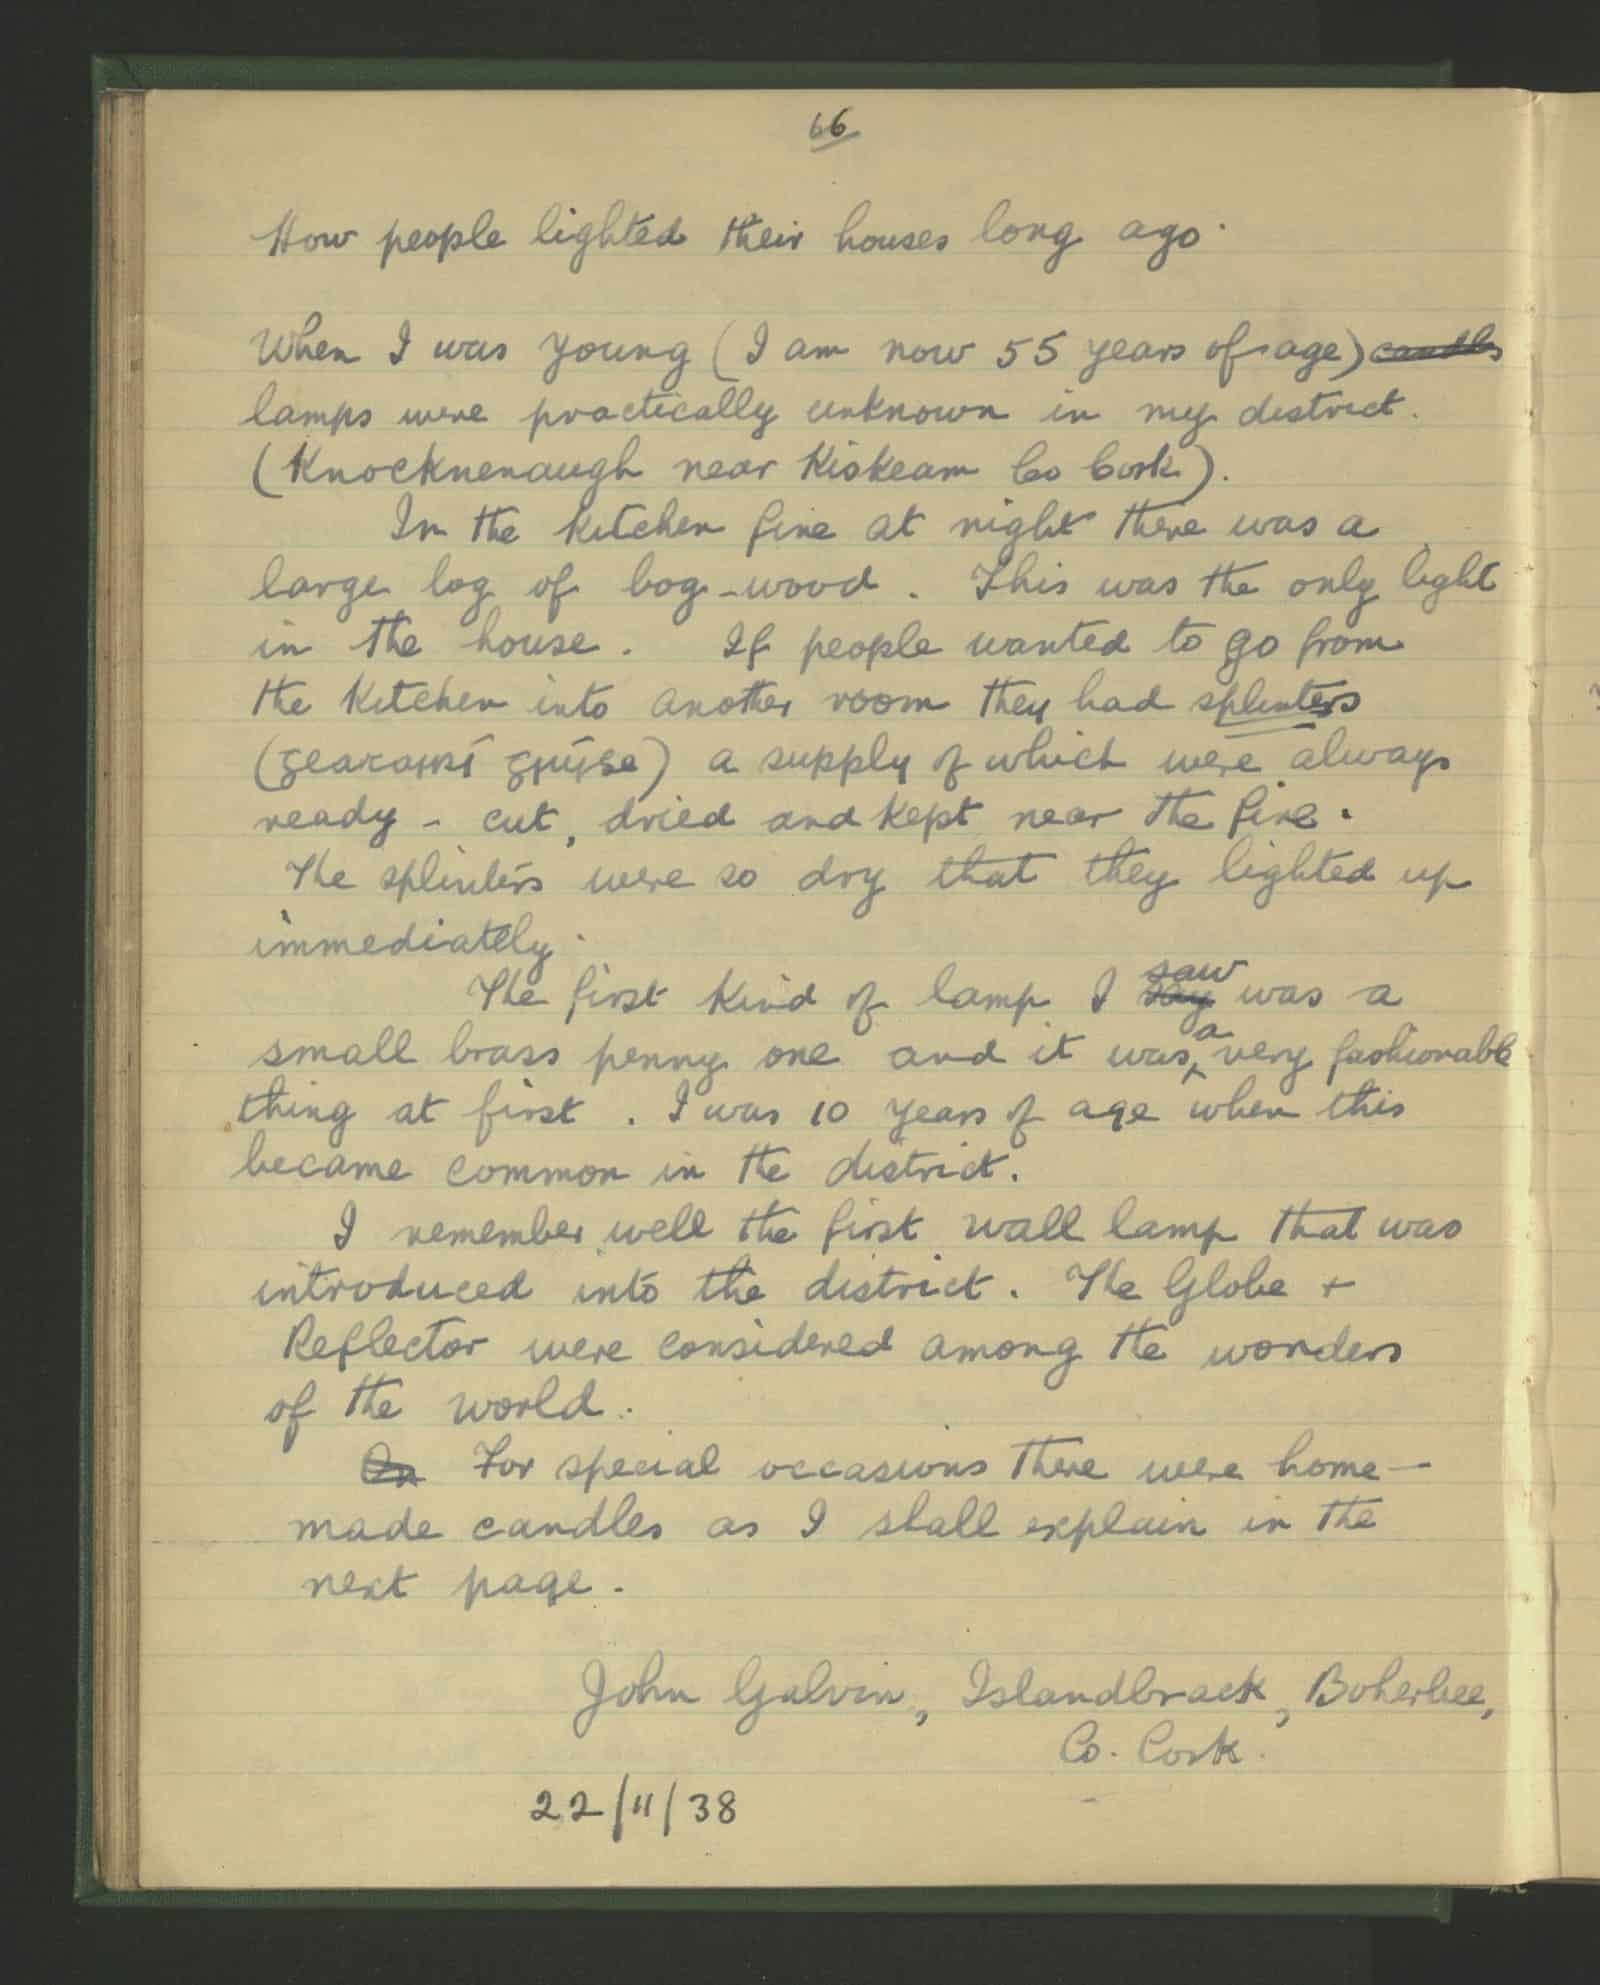 66
How people lighted their houses long ago.
When I was young (I am now 55 years of age) ~~candles~~
lamps were practically unknown in my district.
(Knocknenaugh near Kiskeam Co Cork).
In the kitchen fire at night there was a
large log of bog-wood. This was the only light
in the house. If people wanted to go from
the kitchen into another room they had splinters
(                ) a supply of which were always
ready - cut, dried and kept near the fire.
The splinters were so dry that they lighted up
immediately.
The first kind of lamp I ~~say~~ saw was a
small brass penny one and it was a very fashionable
thing at first. I was 10 years of age when this
became common in the district.
I remember well the first wall lamp that was
introduced into the district. The Globe +
Reflector were considered among the wonders
of the world.
~~On~~ For special occasions there were home-
made candles as I shall explain in the
next page.
John Galvin, Islandbrack, Boherbee,
Co. Cork.
22/11/38